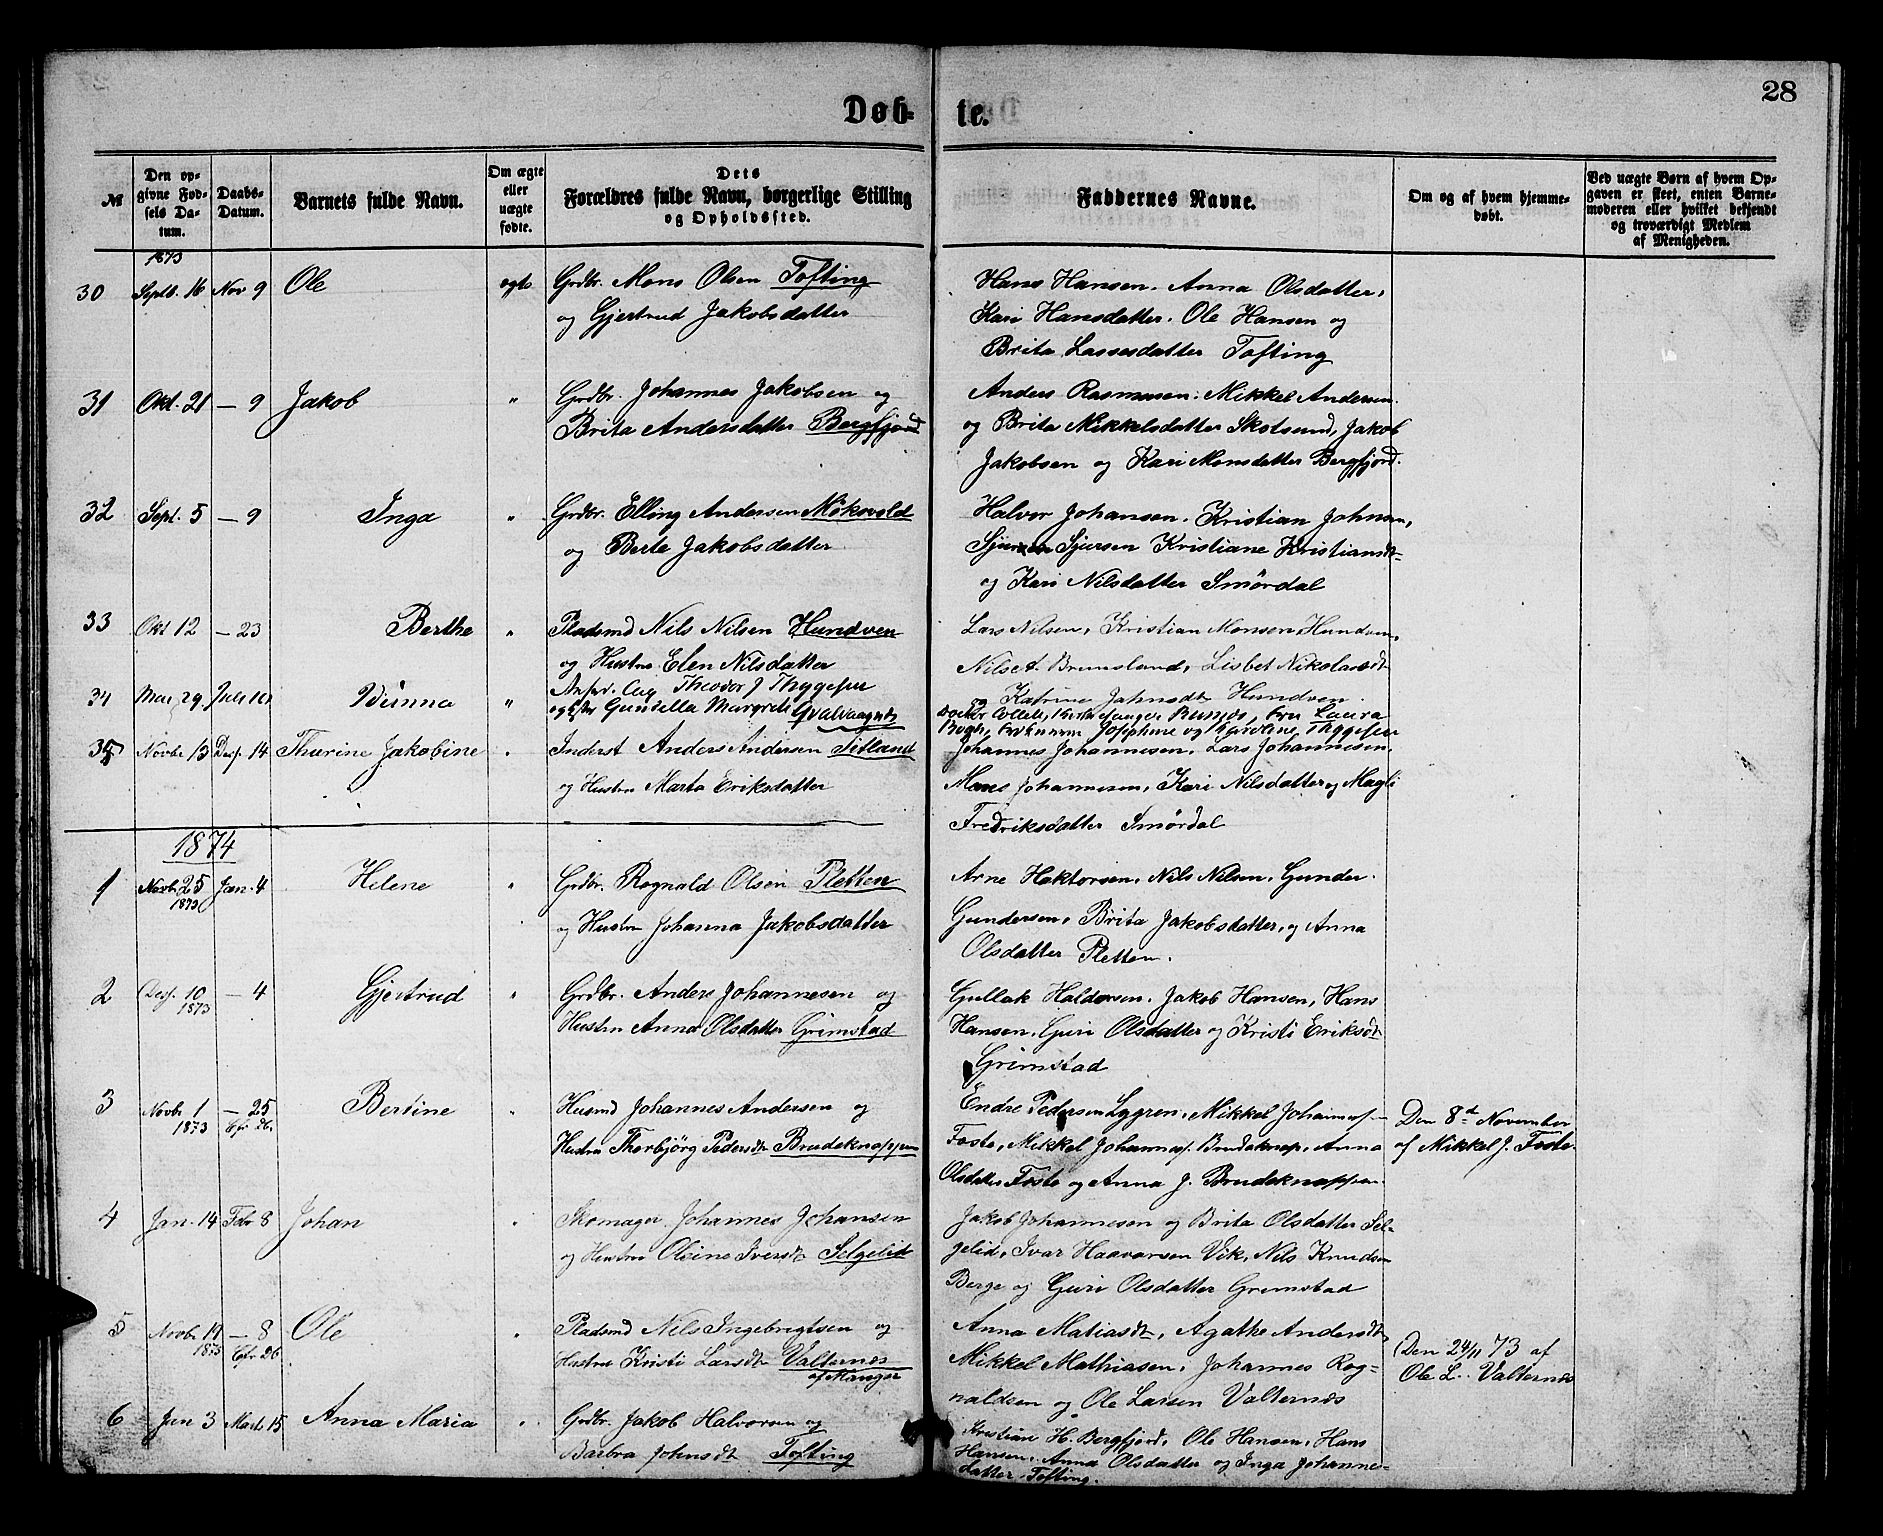 28
Døb- te.
№
Den opgivne Fødsels Datum.
Daabs-Datum.
Barnets fulde Navn.
Om ægte eller uægte fødte.
Dets Forældres fulde Navn, borgerlige Stilling og Opholdssted.
Faddernes Navne.
Om og af hvem hjemmedøbt.
Ved uægte Børn af hvem Opgaven er skeet, enten Barnemoderen eller hvilket bekjendt og troværdigt Medlem af Menigheden.
1873
30 Septb. 16 Nov 9 Ole ægte Grdbr. Mons Olsen Tofting
og Gjertrud Jakobsdatter
Hans Hansen. Anna Olsdatter,
Kari Hansdatter. Ole Hansen og
Brita Lassesdatter Tofting
31 Okt. 21 — 9 Jakob " Grdbr. Johannes Jakobsen og
Brita Andersdatter Bergfjord
Anders Rasmusen. Mikkel Andersen
og Brita Mikkelsdatter Skotsund, Jakob
Jakobsen og Kari Monsdatter Bergfjord.
32 Sept. 5 — 9 Inga " Grdbr. Elling Andersen Mökevold
og Berte Jakobsdatter
Halvor Johansen. Kristian Johnsen,
Sjursen Kristiane Kristiansdt
og Kari Nilsdatter Smördal
33 Okt 12 — 23 Berthe " Pladsmd Nils Nilsen Hundven
og Hustru Elen Nilsdatter
Lars Nilsen, Kristian Monsen Hundven,
Nils A. Brunsland, Lisbet Nikolaisdt
og Katrine Johnsdt Hundven.
34 Mai 29 Juli " Theodor J Thygesen
Gunella Margrete
Laura
Bogh, Josephine og Karoline Thygesen
35 Novbr 13 Des. 14 Thurine Jakobine " Inderst Anders Andersen Sætland
og Hustru Marta Eriksdatter
Johannes Johannesen, Lars Johannesen,
Mons Johannesen, Kari Nilsdatter og Magli
Fredriksdatter Smördal
1874
1 Novbr. 25 1873 Jan. 4 Helene " Grdbr. Rognald Olsen Pletten
og Hustru Johanna Jakobsdatter
Arne Hektorsen, Nils Nilsen, Gunder
Gundersen, Brita Jakobsdatter, og Anna
Olsdatter Pletten.
2 Des. 10 1873 — 4 Gjertrud " Grdbr. Anders Johannesen og
Hustru Anna Olsdatter Grimstad
Gullak Haldorsen. Jakob Hansen, Hans
Hansen, Guri Olsdatter og Kristi Eriksdt
Grimstad
3 Novbr 1 1873 — 25 Bertine " Husmd Johannes Andersen og
Hustru Thorbjörg Pedersdt Brudeknappen
Endre Pedersen Lygren, Mikkel Johannes.
Foste, Mikkel Johannes. Brudeknap, Anna
Olsdatter Foste og Anna J. Brudeknappen.
Den 8de November
af Mikkel J. Foste.
4 Jan. 14 Febr 8 Johan " Skomager Johannes Johansen
og Hustru Oleine Iversdt Selgelid
Jakob Johannesen og Brita Olsdatter Sel-
gelid, Ivar Haavarsen Vik, Nils Knudsen
Berge og Guri Olsdatter Grimstad
5 Novbr 19 1873 — 8 Ole " Pladsmd Nils Ingebrigtsen og
Hustru Kristi Larsdt Valternes
af Manger
Anna Matiasdt, Agathe Andersdt,
Mikkel Mathiasen, Johannes Rog-
naldsen og Ole Larsen Valternes
Den 24/11 73 af
Ole L. Valternes
6 Jan 3 Marts 15 Anna Maria " Grdbr. Jakob Halvorsen og
Barbra Johnsdt Tofting
Kristian H. Bergfjord, Ole Hansen, Hans
Hansen, Anna Olsdatter og Inga Johannes-
datter Tofting.